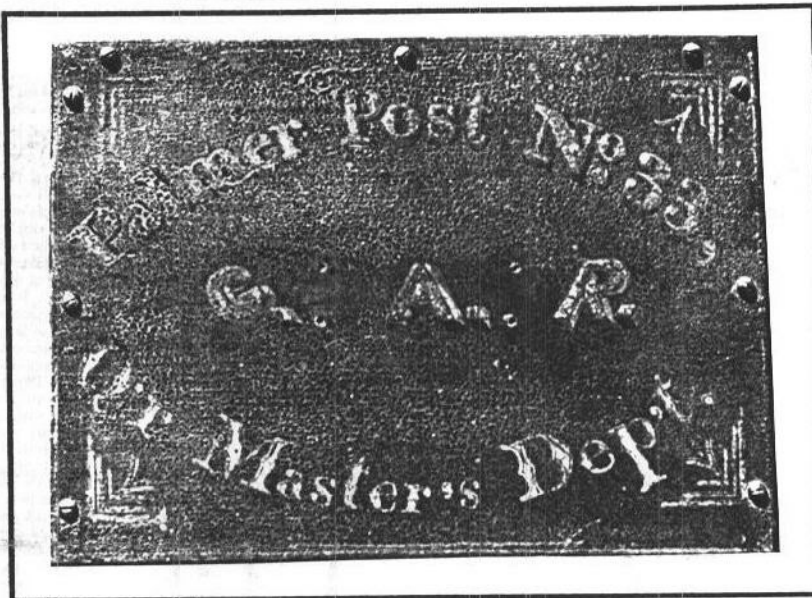 Palmer Post No. 33,
G. A. R.
Qr. Master's Dep't.